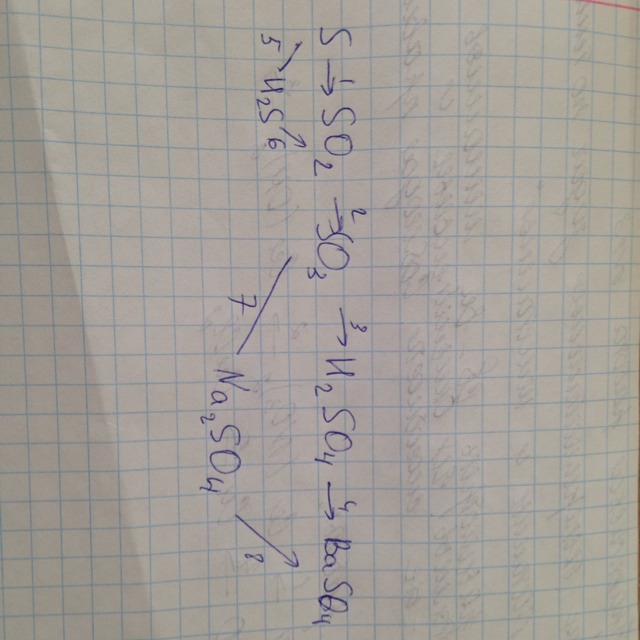 S →¹ SO₂ →² SO₃ →³ H₂SO₄ →⁴ BaSO₄
5 H₂S 6
7 Na₂SO₄ 8